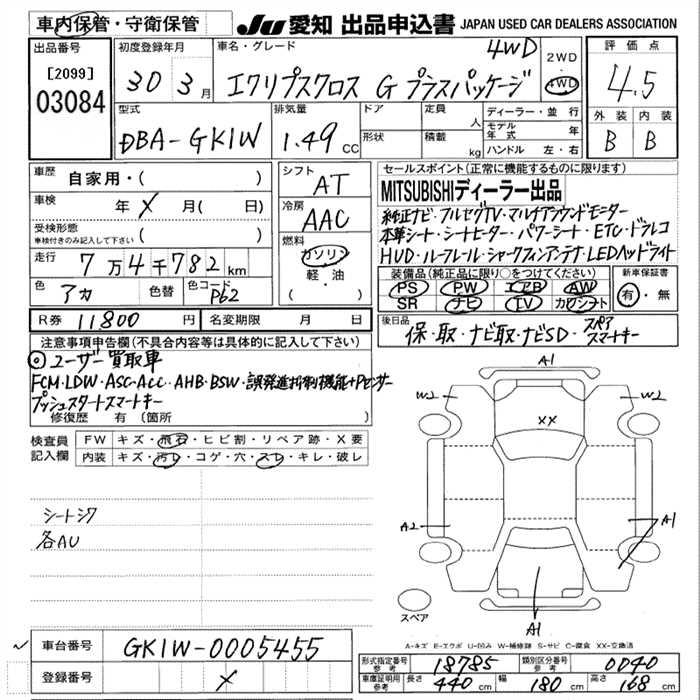 車内保管・守衛保管
JU 愛知 出品申込書 JAPAN USED CAR DEALERS ASSOCIATION
出品番号
[2099]
03084
初度登録年月
30 3月
車名・グレード
エクリプスクロス G プラスパッケージ 4WD
2WD
・
4WD
評価点
4.5
外装 内装
B B
型式
DBA-GK1W
排気量
1.49 cc
ドア
形状
定員 人
積載 kg
ディーラー・並行
モデル年式 年
ハンドル 左・右
車歴 自家用・( )
車検 年 × 月( 日)
受検形態
車検付きのみ記入して下さい ( )
走行 7万4千782km
色 アカ
色替
色コード P62
シフト
AT
冷房
AAC
燃料
ガソリン
軽・油
( )
セールスポイント(正常に機能するものに限ります)
MITSUBISHIディーラー出品
純正ナビ・フルセグTV・マルチアラウンドモニター
本革シート・シートヒーター・パワーシート・ETC・ドラレコ
HUD・ルーフレール・シャークフィンアンテナ・LEDヘッドライト
装備品(純正品に限り○をつけてください)
PS PW エアB AW
SR ナビ TV カワシート
新車保証書
有・無
R券 11800 円
名変期限 月 日
後日品
保・取・ナビ取・ナビSD・スペアスマートキー
注意事項申告欄(不具合内容等は具体的に記入して下さい)
◎ユーザー買取車
FCM・LDW・ASC・ACC・AHB・BSW・誤発進抑制機能+Pセンサー
プッシュスタートスマートキー
修復歴 有 (箇所 )
検査員記入欄
FW キズ・飛石・ヒビ割・リペア跡・X要
内装 キズ・汚レ・コゲ・穴・スレ・キレ・破レ
シートシワ
各AU
A1
W2
W2
XX
A2
A1
A1
スペア
A-キズ E-エクボ U-凹み W-補修跡 S-サビ C-腐食 XX-交換済
車台番号 GK1W-0005455
登録番号 ×
形式指定番号参考 18785
類別区分番号参考 0040
車庫証明用参考 長さ 440 cm 幅 180 cm 高さ 168 cm